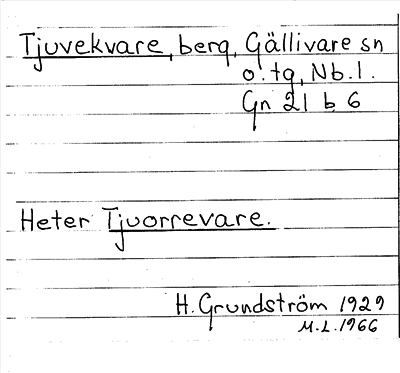 Tjuvekvare, berg, Gällivare sn
o. tg, Nb. l.
Gn 21 b 6
Heter Tjuorrevare.
H. Grundström 1929
M.L. 1966